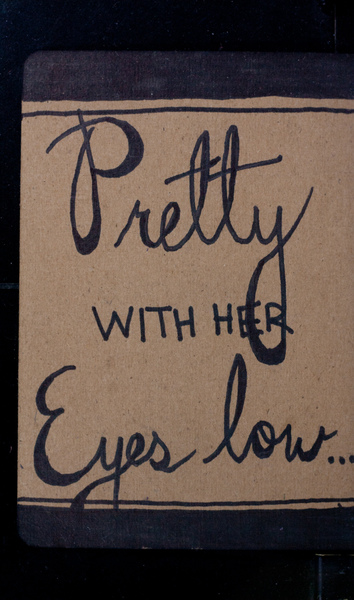 Pretty
WITH HER
Eyes low...